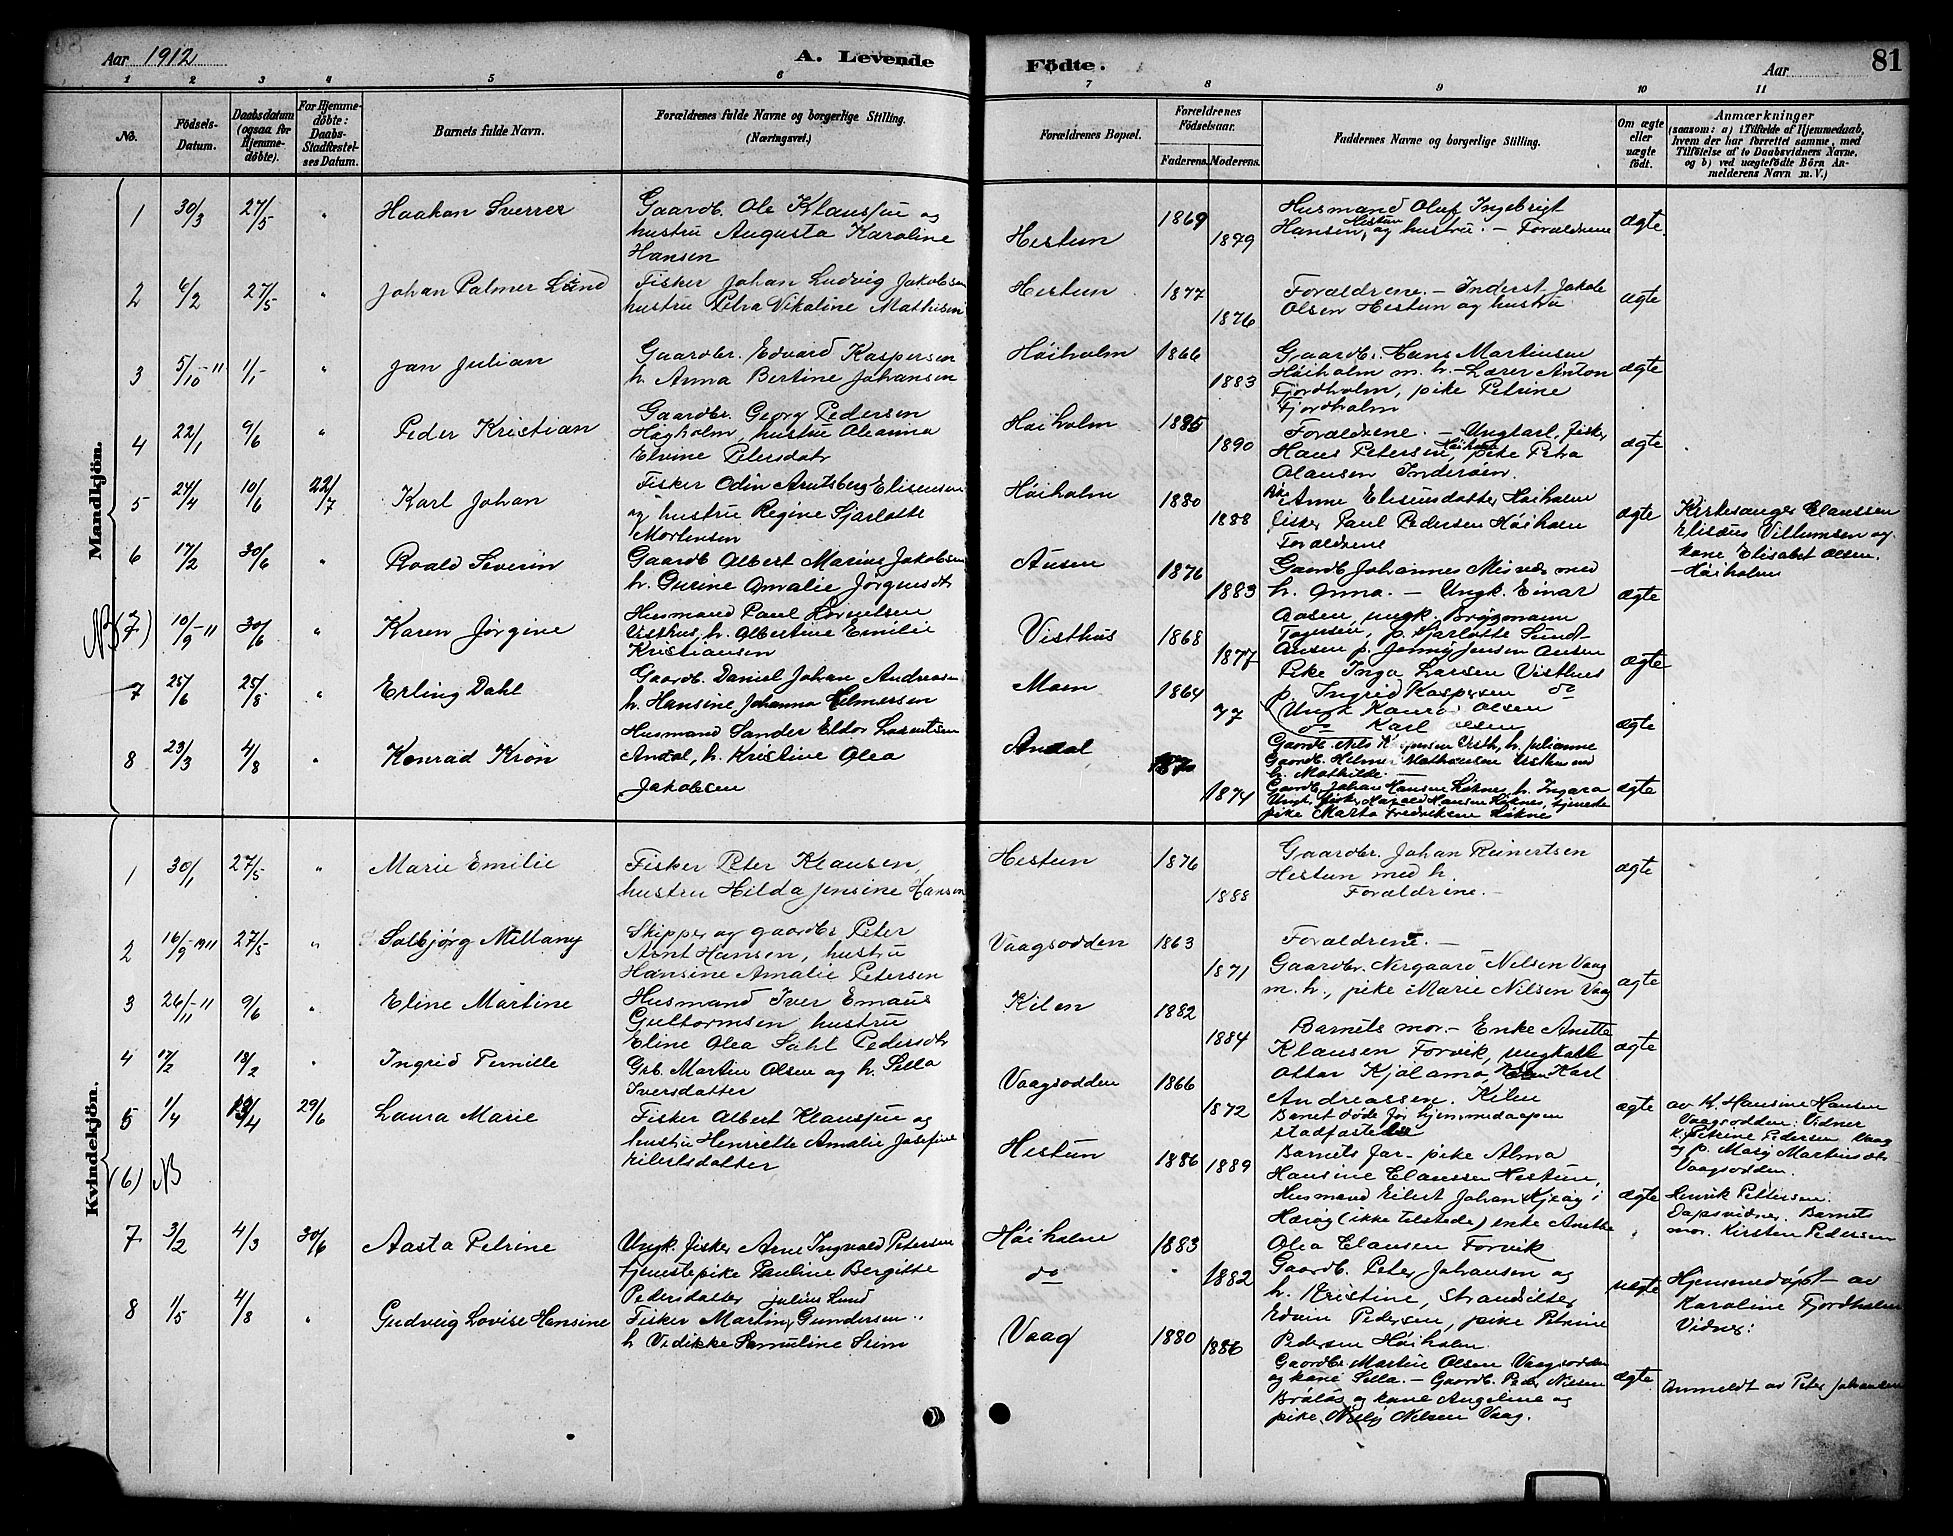 Aar 1912
A. Levende
Födte.
Aar
81
1 2 3 4 5 6 7 8 9 10 11
No.
Födsels-
Datum.
Daabsdatum
(ogsaa for
Hjemme-
döbte).
For Hjemme-
döbte:
Daabs-
Stadfæstel-
ses Datum.
Barnets fulde Navn.
Forældrenes fulde Navne og borgerlige Stilling.
(Næringsvei.)
Forældrenes Bopæl.
Forældrenes
Födselsaar.
Faderens. Moderens.
Faddernes Navne og borgerlige Stilling.
Om ægte
eller
uægte
födt.
Anmærkninger
(saasom: a) i Tilfælde af Hjemmedaab,
hvem der har forrettet samme, med
Tilföielse af to Daabsvidners Navne,
og b) ved uægtefödte Börn An-
melderens Navn m. V.)
Mandkjön.
1 30/3 27/5 " Haakon Sverrer
Gaardb. Ole Klausfue og
hustru Augusta Karoline
Hansen
Hestun 1869 1879
Husmand Oluf Ingebrigt
Hansen, Hestun og hustru. – Forældrene
ægte
2 6/2 27/5 " Johan Palmer Lund
Fisker Johan Ludvig Jakobsen
hustru Petra Vikaline Mathisen
Hestun 1877 1876
Forældrene. – Inderst Jakob
Olsen Hestun og hustru
ægte
3 5/10-11 1/1 " Jan Julian
Gaardbr. Edvard Kaspersen
h. Anna Bertine Johansen
Höiholm 1866 1883
Gaardbr. Hans Martinsen
Höiholm m. h. – Lærer Anton
Fjordholm, pike Petrine
Fjordholm
ægte
4 22/1 9/6 " Peder Kristian
Gaardbr. Georg Pedersen
Høyholm, hustru Oleanna
Elvine Petersdatr
Höiholm 1885 1890
Forældrene. – Ungkarl, fisker
Hans Petersen, Höiholm pike Petra
Olausen Inderöen.
ægte
5 24/4 10/6 22/7 Karl Johan
Fisker Odin Arntsberg Elisensen
og hustru Regine Sjarlotte
Mortensen
Höiholm 1880 1888
Pike Anne Eliseusdatter Höiholm
fisker Paul Pedersen Höiholm
Forældrene
ægte
Kirkesanger Claussen
Elisæus Villumsen og
kone Elisabet Olsen.
– Höiholm
6 17/2 30/6 " Roald Severin
Gaardb Albert Marius Jakobsen
h. Gurine Amalie Jörgensdtr
Ausen 1876 1883
Gaardb Johannes Misvær med
h. Anna. – Ungk. Einar
Aasen, ungk. Bryggmann
ægte
NB (7) 10/9-11 30/6 " Karen Jørgine
Husmand Paul Cornelsen
Visthus, h. Albertine Emilie
Kristiansen
Visthus 1868 1877
Pike Inga Larsen Visthus
p. Ingrid Kaspersen do
ægte
7 25/6 25/8 " Erling Dahl
Gaardb. Daniel Johan Andreasen
h. Hansine Johanna Elmersen
Moen 1864 77
(Ungk Konrad Olsen
do Karl Olsen
ægte
8 23/3 4/8 " Konrad Kron
Husmand Sander Eldor Lorentsen
Andal, h. Kristine Olea
Jakobsen
Andal 1870 1874
Gaardb. Johan Hansen Løknes, h. Ingara
Ungk. fisker Harald Hansen Løknes, tjeneste
pike Marta Fredriksen Løknes
ægte
Kvindekjön.
1 30/1 27/5 " Marie Emilie
Fisker Peter Klausen,
hustru Hilda Jensine Hansen
Hestun 1876 1888
Gaardbr. Johan Reinertsen
Hestun med h.
Forældrene. –
ægte
2 16/9-1911 27/5 " Solbjørg Millany
Skipper og gaardbr Peter
Arnt Hansen, hustru
Hansine Amalie Petersen
Vaagsodden 1863 1871
Forældrene. –
Gaardbr. Nergaard Nilsen Vaag
m. h., pike Marie Nilsen Vaag
ægte
3 26/11-11 9/6 " Eline Martine
Husmand Iver Emaus
Guttormsen, hustru
Eline Olea Dahl Pedersdtr
Kilen 1882 1884
Barnets mor. – Enke Anette
Klausen Forvik, ungkarl
Ottar Kjølamo, Karl
Andreassen. Kilen
ægte
4 17/2 18/2 " Ingrid Pernille
Grb. Martin Olsen og h. Sella
Iversdatter
Vaagsodden 1866 1872
Barnet døde før hjemmedaapen
stadfæstedes
ægte
av K. Hansine Hansen
Vaagsodden. Vidner
K. Petrine Pedersen Vaag
og p. Mary Martinsdtr
Vaagsodden.
5 1/4 13/4 29/6 Laura Marie
Fisker Albert Klausfue og
hustru Henriette Amalie Josefine
Eilertsdatter
Hestun 1886 1889
Barnets far – pike Alma
Hansine Claussen Hestun,
Husmand Eilert Johan Kjeøy i
Herøy (ikke tilstede) enke Anette
Olea Clausen Forvik
ægte
Henrik Pettersen.
Dapsvidner. Barnets
mor. Kirsten Pedersen
(6) NB
7 3/2 4/3 30/6 Aasta Petrine
Ungk. fisker Arne Ingvald Petersen
tjenestepike Pauline Bergitte
Pedersdatter
Höiholm 1883
do " 1882
Gaardb. Peter Johansen og
h. Kristine, strandsitter
Edvin Pedersen, pike Petrine
Pedersen Höiholm.
uægte
Hjemmedøpt av
Karoline Fjordholm
Vidner:
8 1/5 4/8 " Gudveig Lovise Hansine
Julius Lund
Fisker Martin, Gundersen
h Vedikke Samuline Stim
Vaag 1880 1886
Gaardbr. Martin Olsen Vaagsodden
og kone Sella. – Gaardb. Peder Nilsen
Bråløs og kone Angeline og
pike Nelly Nilsen Vaag.
ægte
Anmeldt av Peter Johansen